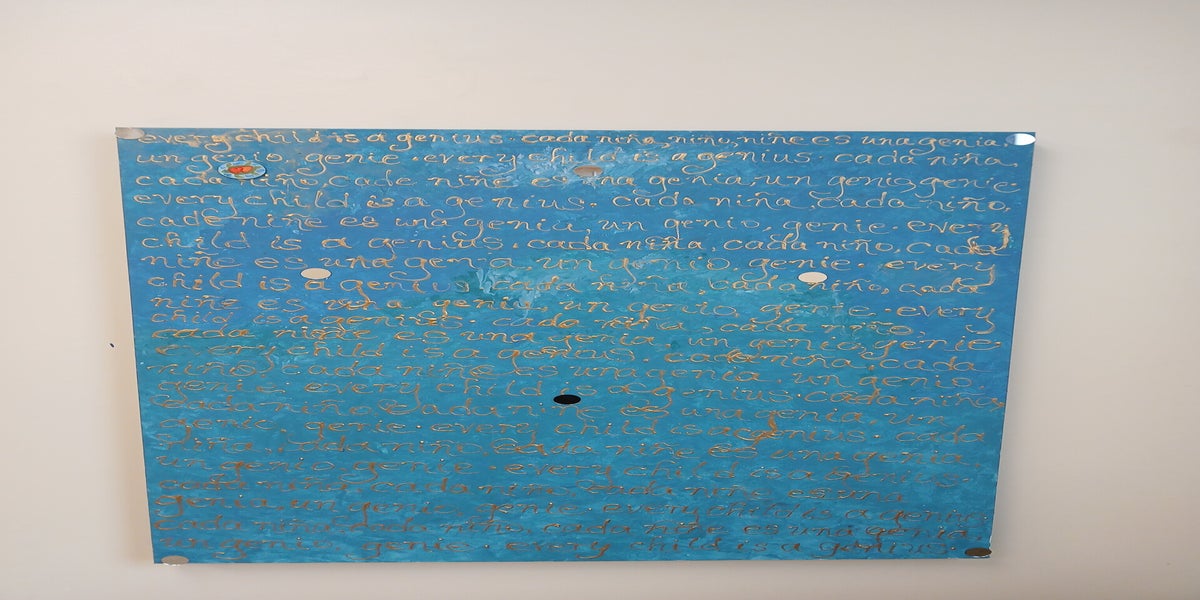 every child is a genius. cada niña, niño, niñe es una genia,
un genio, genie. every child is a genius. cada niña,
cada niño, cade niñe es una genia, un genio, genie.
every child is a genius. cada niña, cada niño,
cade niñe es una genia, un genio, genie. every
child is a genius. cada niña, cada niño, cade
niñe es una genia, un genio, genie. every
child is a genius. cada niña, cada niño, cada
niñe es una genia, un genio, genie. every
child is a genius. cada niña, cada niño,
cada niñe es una genia, un genio, genie.
every child is a genius. cada niña, cada
niño, cada niñe es una genia, un genio,
genie. every child is a genius. cada niña,
cada niño, cada niñe es una genia, un
genio, genie. every child is a genius. cada
niña, cada niño, cada niñe es una genia,
un genio, genie. every child is a genius.
cada niña, cada niño, cada niñe es una
genia, un genio, genie. every child is a genius.
cada niña, cada niño, cada niñe es una genia,
un genio, genie. every child is a genius.